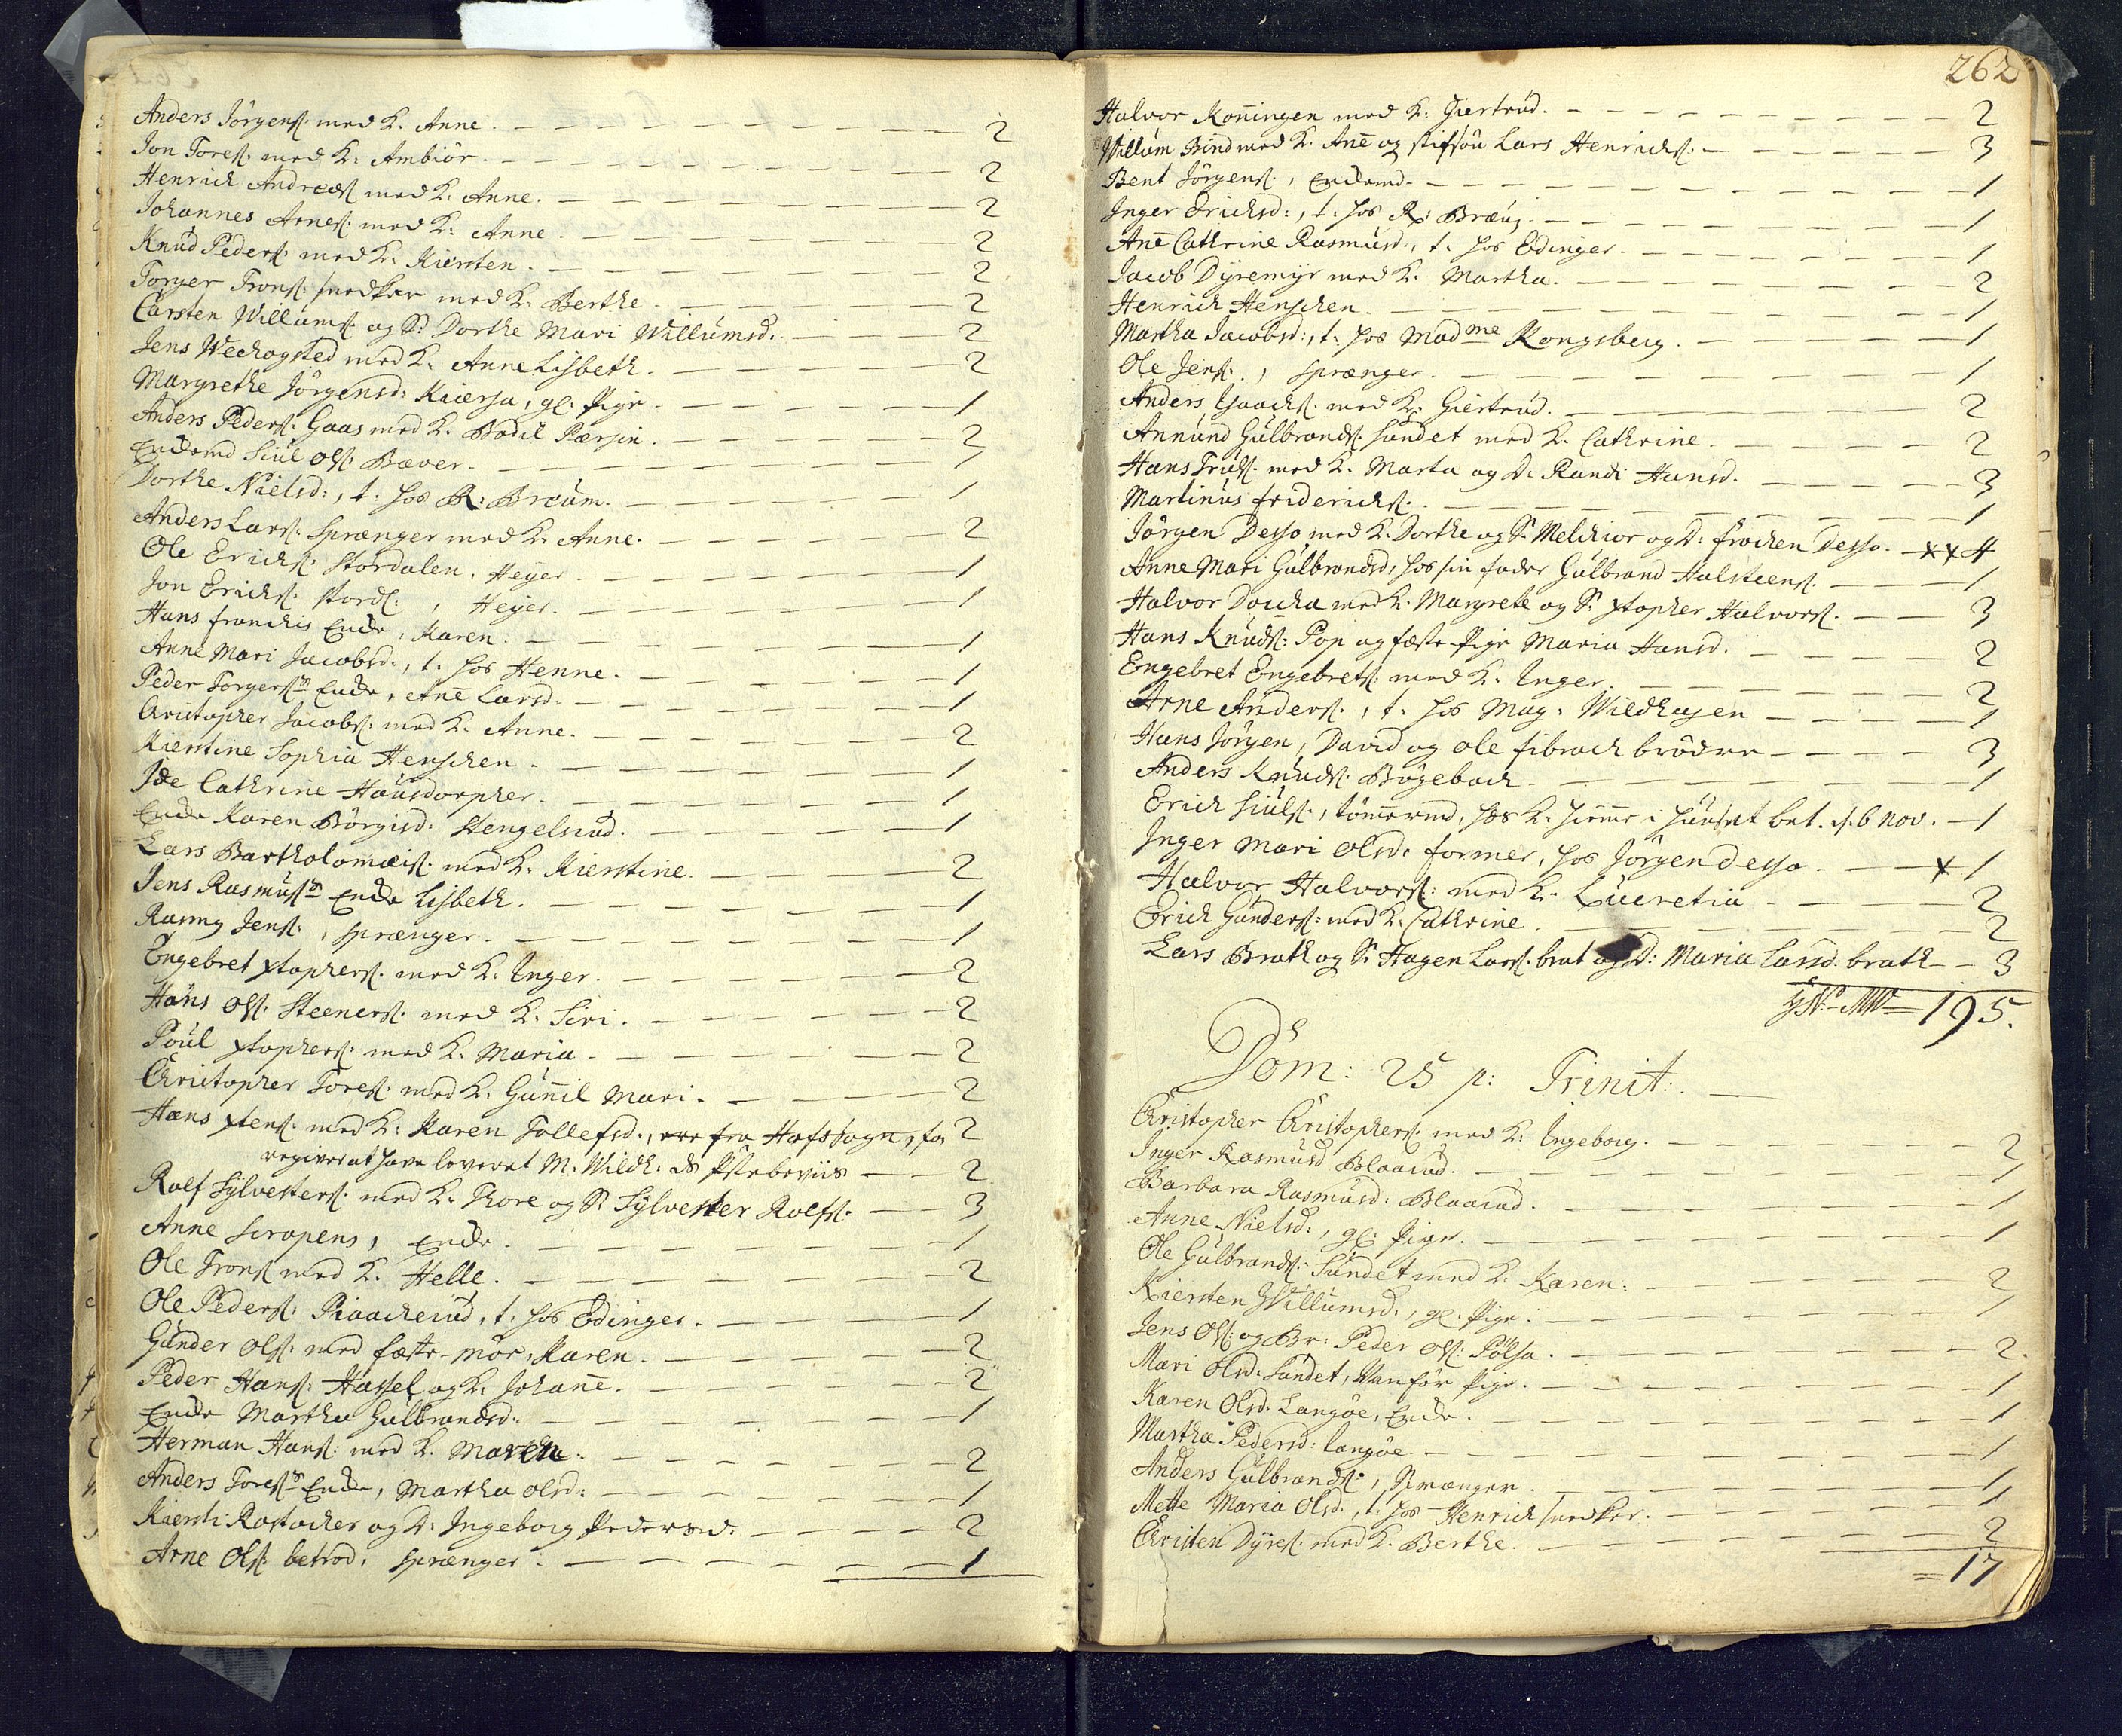 Anders Jörgens. med K. Anne. 2
Jon Tores. med K: Ambiör. 2
Henrich Andreæs. med K: Anne. 2
Johannes Arnes. med K: Anne 2
Knud Peders. med K: Kiersten. 2
Torger Trons. snedker med K. Berthe 2
Carsten Willums. og S: Dorthe Mari Willumsd. 2
Jens Weehogsted med K. Anne Lisbeth. 2
Margrethe Jörgensd: Kiærsa, gl. Pige 1
Anders Peders. Gaas med K. Bodil Pærsin. 2
Enkemd Siul Ols. Bæver. 1
Dorthe Nielsd:, t: hos R: Breum. 1
Anders Lars. Sprænger med K. Anne. 2
Ole Erichs. Stordalen, Heyer. 1
Jon Erichs. stord:, Heyer. 1
Hans franchis Enke, Karen. 1
Anne Mari Jacobsd., t. hos Henne. 1
Peder Torgers. Enke, Ane Larsd. 1
Christopher Jacobs. med K. Anne. 2
Kierstine Sophia Henschen. 1
Ide Cathrine Hausdorpher. 1
Enke Karen Börgisd. Stengelsrud. 1
Lars Bartholomæis. med K. Kierstine. 2
Jens Rasmuss. Enke Lisbeth. 1
Rasmg Jens., sprænger. 1
Engebret xtophers. med K. Inger. 2
Hans Ols. Steeners. med K. Siri. 2
Poul xtophers. med K. Maria. 2
Christopher Tores. med K. Gunnil Mari. 2
Hans xtens. med K: Karen Tollefsd., fra Hafs sogn, 2
regiver at have leveret M. Wildh: ds Pste beviis 2
Rolf Sylvesters. med K. Thore og S: Sylvester Rolfs. 3
Anne Scropens, Enke. 1
Ole Trons. med K. Helle. 2
Ole Peders. Piaacherud, t. hos Edinger. 1
Gunder Ols. med fæste-mör, Karen. 2
Peder Hans. Hassel og K. Johanne. 2
Enke Martha Gulbrandsd. 1
Herman Hans: med K. Maren. 2
Anders Tores. Enke, Martha Olsd: 1
Kiersti Rostocher og D: Ingeborg Pedersd. 2
Arne Ols. betrod, sprænger. 1
262
Halvor Konningen med K: Giertrud. 2
Willum Bind med K. Ane og stifsön Lars Henrichs. 3
Bent Jörgens., Enkemd. 1
Inger Erichsd:, t: hos R: Breum. 1
Ane Cathrine Rasmusd., t. hos Edinger. 1
Jacob Dyremyr med K. Martha. 2
Henrich Henschen. 1
Martha Jacobsd:, t: hos Madme Kongsberg. 1
Ole Jens:, sprænger. 1
Anders Isaachs. med K: Giertrud. 2
Annund Gulbrands. Sundet med K. Cathrine. 2
Hans Truls. med K. Marta og D. Randi Hansd. 3
Martinus friderichs. 1
Jörgen Desso med K. Dorthe og S: Melchior og D: frochen Desso. xx 4
Anne Mari Gulbrandsd, hos sin fader Gulbrand Halsteens. 1
Halvor Doucka med K. Margrete og S: xtopher Halvors. 3
Hans Knuds: Pop og fæste-Pige Maria Hansd. 2
Engebret Engebrets. med K. Inger. 2
Arne Anders., t. hos Mag. Wildhagen 1
Hans Jörgen, David og Ole fibrach brödre 3
Anders Knuds. Bögebach. 1
Erich Siuls., tömmermd, hos K. i huuset bet. d. 6 Nov. 1
Inger Mari Olsd. former, hos Jörgen Desso. x 1
Halvor Halvors: med K. Lucretia 2
Erich Gunders: med K. Cathrine. 2
Lars Brath og S: Hagen Lars. brat og D: Maria Larsd: brath 3
195.
Dom: 25 p: Trinit:
Christopher Christophers. med K: Ingeborg. 2
Inger Rasmusd Blaarud. 1
Barbara Rasmusd: Blaarud. 1
Anne Nielsd:, gl: Pige. 1
Ole Gulbrands. Sundet med K. Karen: 2
Kiersten Willumsd:, gl. Pige. 1
Jens Ols: og Br: Peder Ols: Pölsa. 2.
Mari Olsd: Sundet, Vanför Pige. 1
Karen Olsd. Langöe, Enke. 1
Martha Pedersd: Langöe. 1
Anders Gulbrands:, Sprænger. 1
Mette Maria Olsd., t: hos Henrich snedker. 1
Christen Dyres. med K. Berthe. 2
= 17